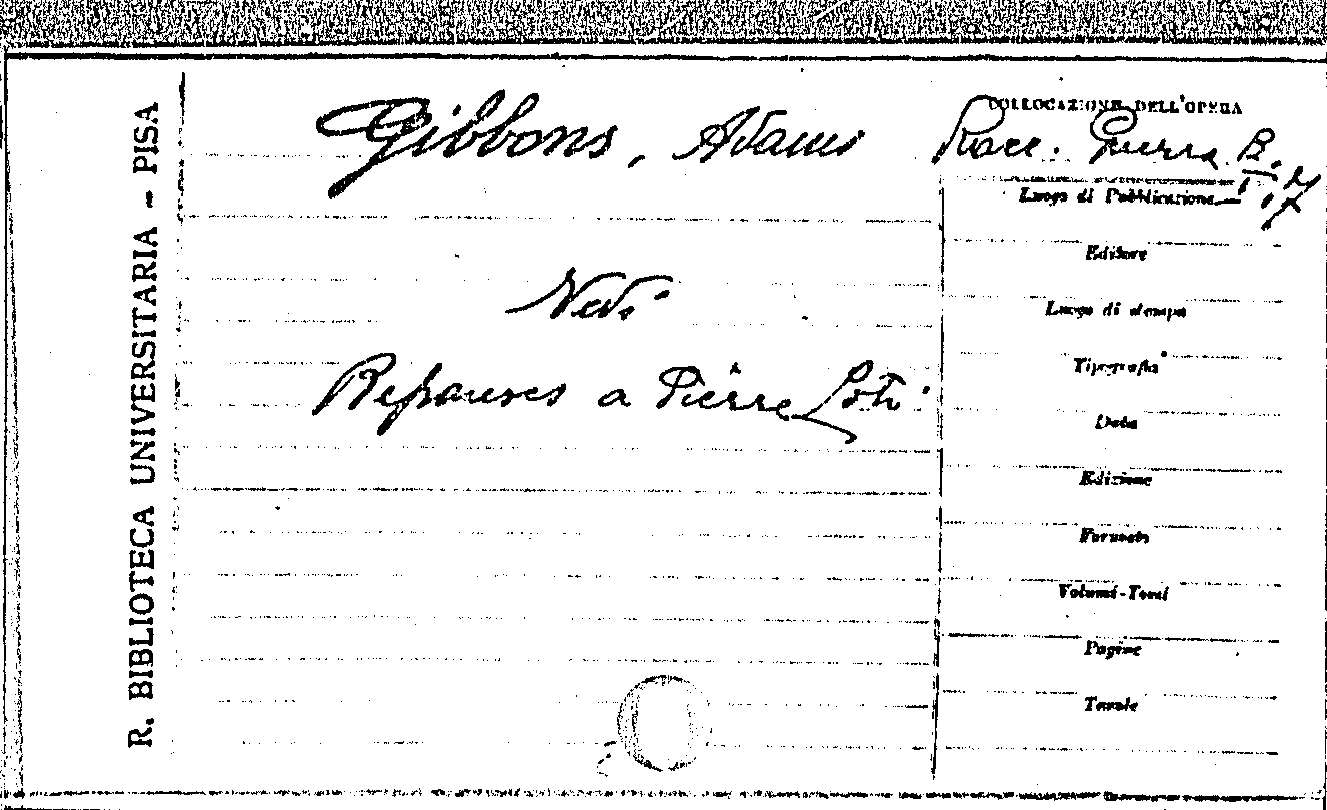 R. BIBLIOTECA UNIVERSITARIA - PISA
Gibbons, Adams
Vedi
Reponses a Pierre Loti
COLLOCAZIONE DELL'OPERA
Racc. Guerra B.
I. 
Luogo di Pubblicazione
Editore
Luogo di stampa
Tipografia
Data
Edizione
Formato
Volumi-Tomi
Pagine
Tavole